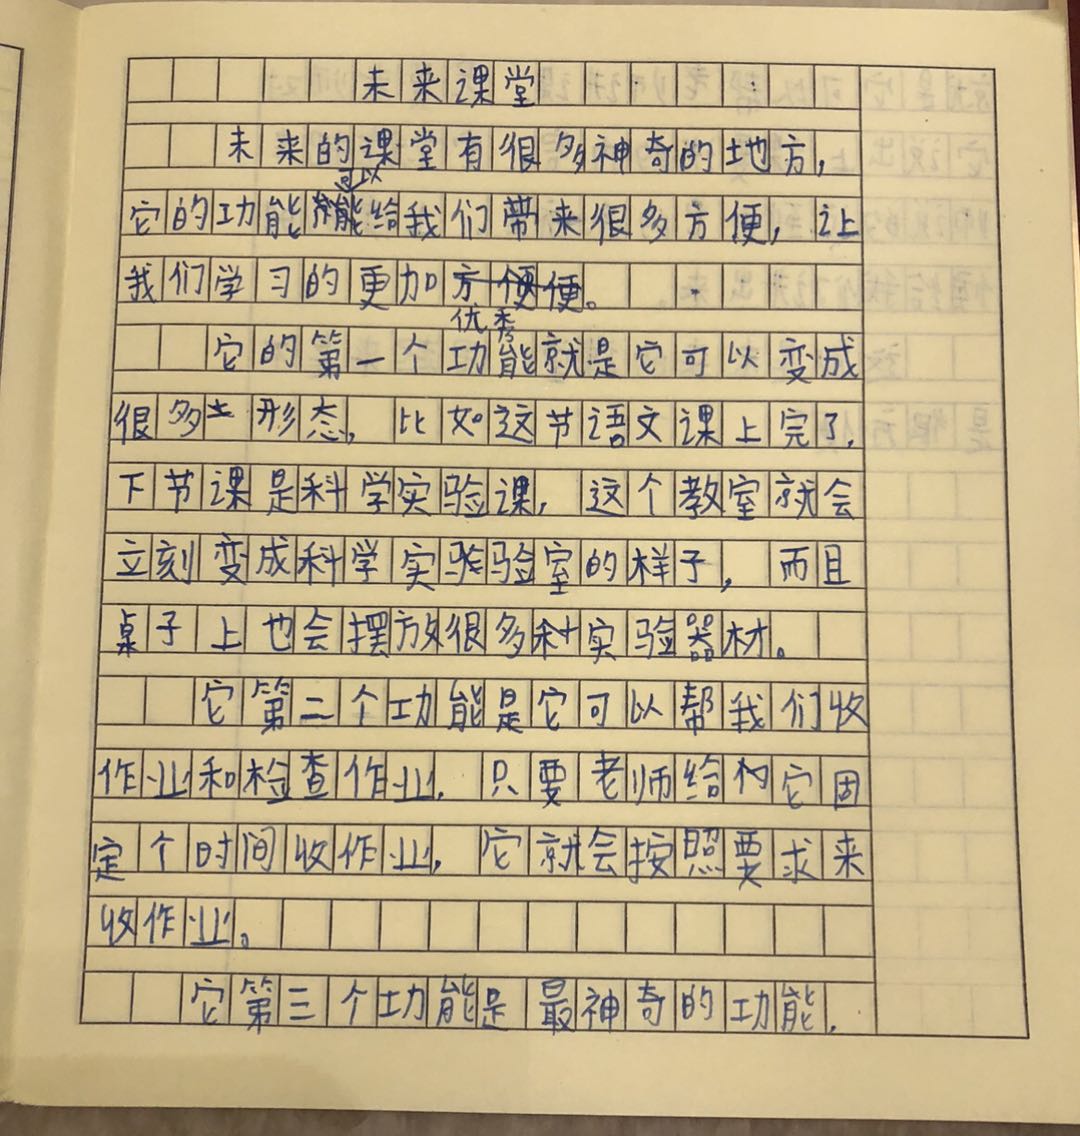 未来课堂
未来的课堂有很多神奇的地方，
可以
它的功能能给我们带来很多方便，让
我们学习的更加方便便。
优秀
它的第一个功能就是它可以变成
很多 形态，比如这节语文课上完了，
下节课是科学实验课，这个教室就会
立刻变成科学实验室的样子，而且
桌子上也会摆放很多种实验器材。
它第二个功能是它可以帮我们收
作业和检查作业，只要老师给 它固
定个时间收作业，它就会按照要求来
收作业。
它第三个功能是最神奇的功能，